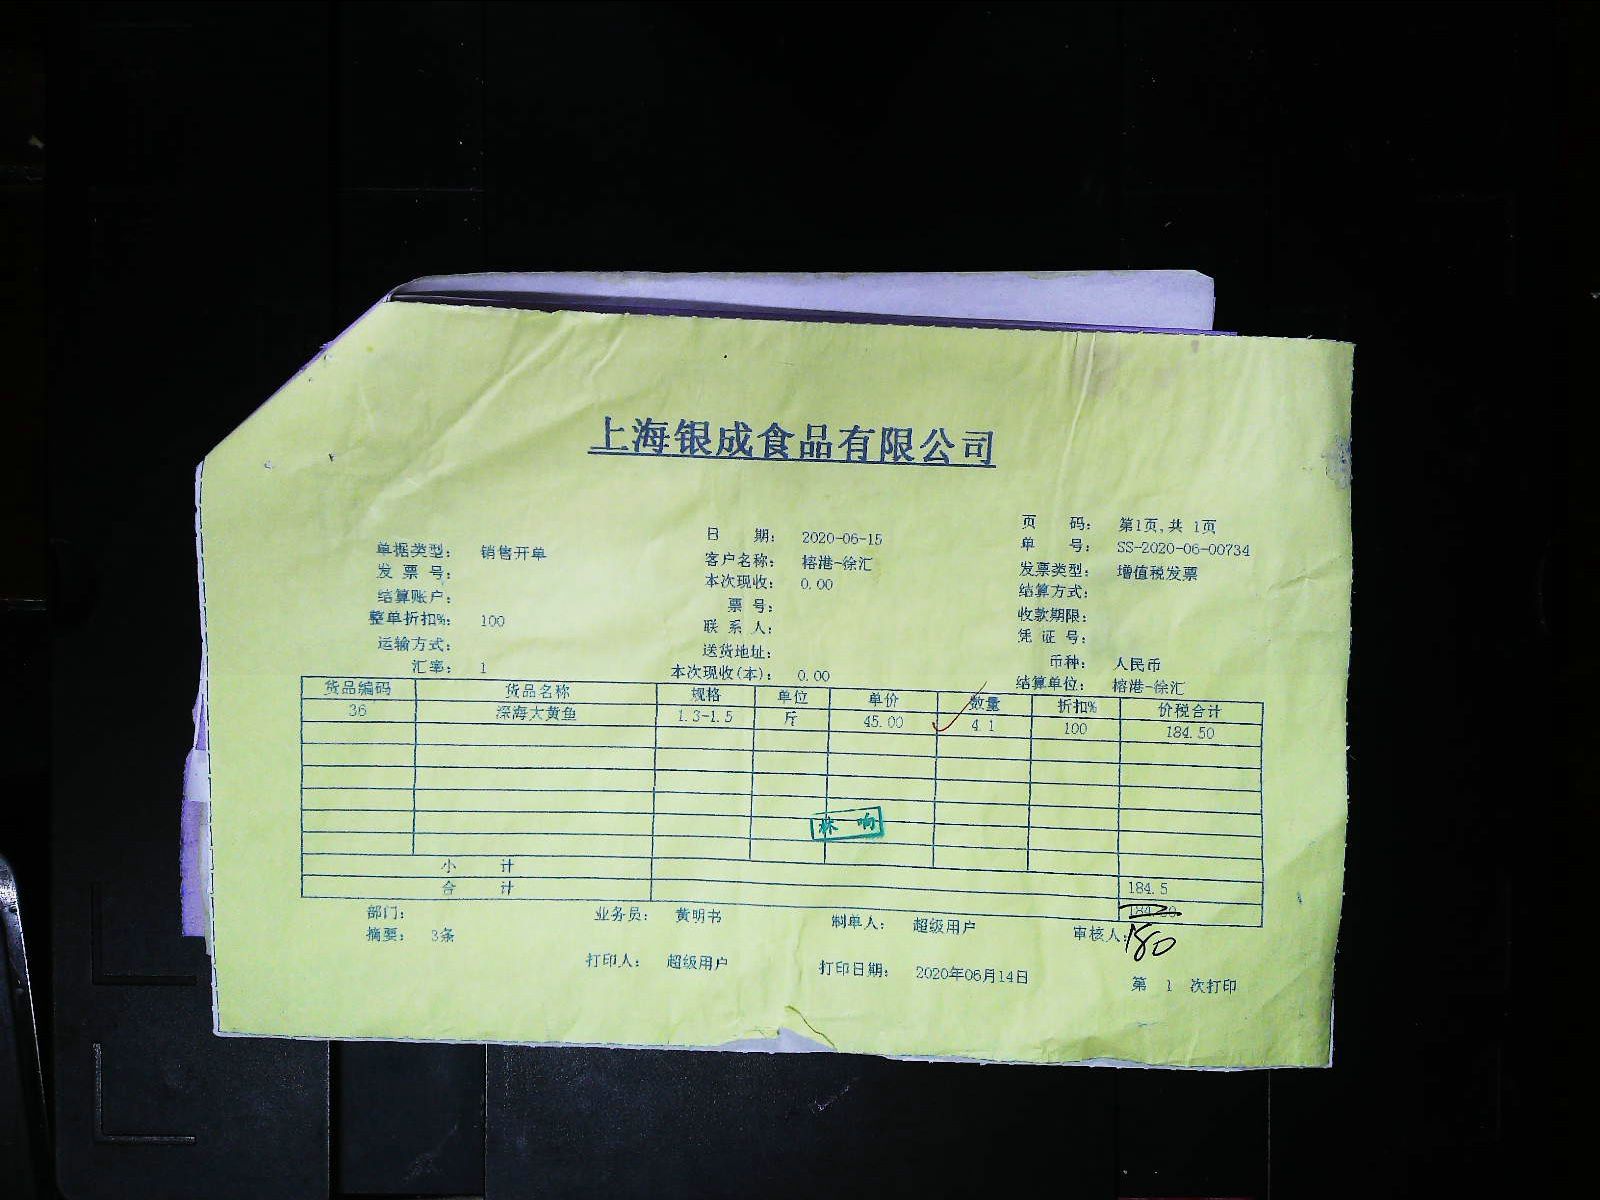 上海银成食品有限公司
页 码： 第1页,共 1页
日 期： 2020-06-15
单 号： SS-2020-06-00734
单据类型： 销售开单
客户名称： 榕港-徐汇
发票类型： 增值税发票
发 票 号：
本次现收： 0.00
结算方式：
结算账户：
票 号：
收款期限：
整单折扣%： 100
联 系 人：
凭 证 号：
运输方式：
送货地址：
币种： 人民币
汇率： 1
本次现收(本)： 0.00
结算单位： 榕港-徐汇
货品编码 货品名称 规格 单位 单价 数量 折扣% 价税合计
36 深海大黄鱼 1.3-1.5 斤 45.00 4.1 100 184.50
林 响
小 计 184.5
合 计 184.50
180
部门： 业务员： 黄明书 制单人： 超级用户 审核人：
摘要： 3条
打印人： 超级用户 打印日期： 2020年06月14日 第 1 次打印